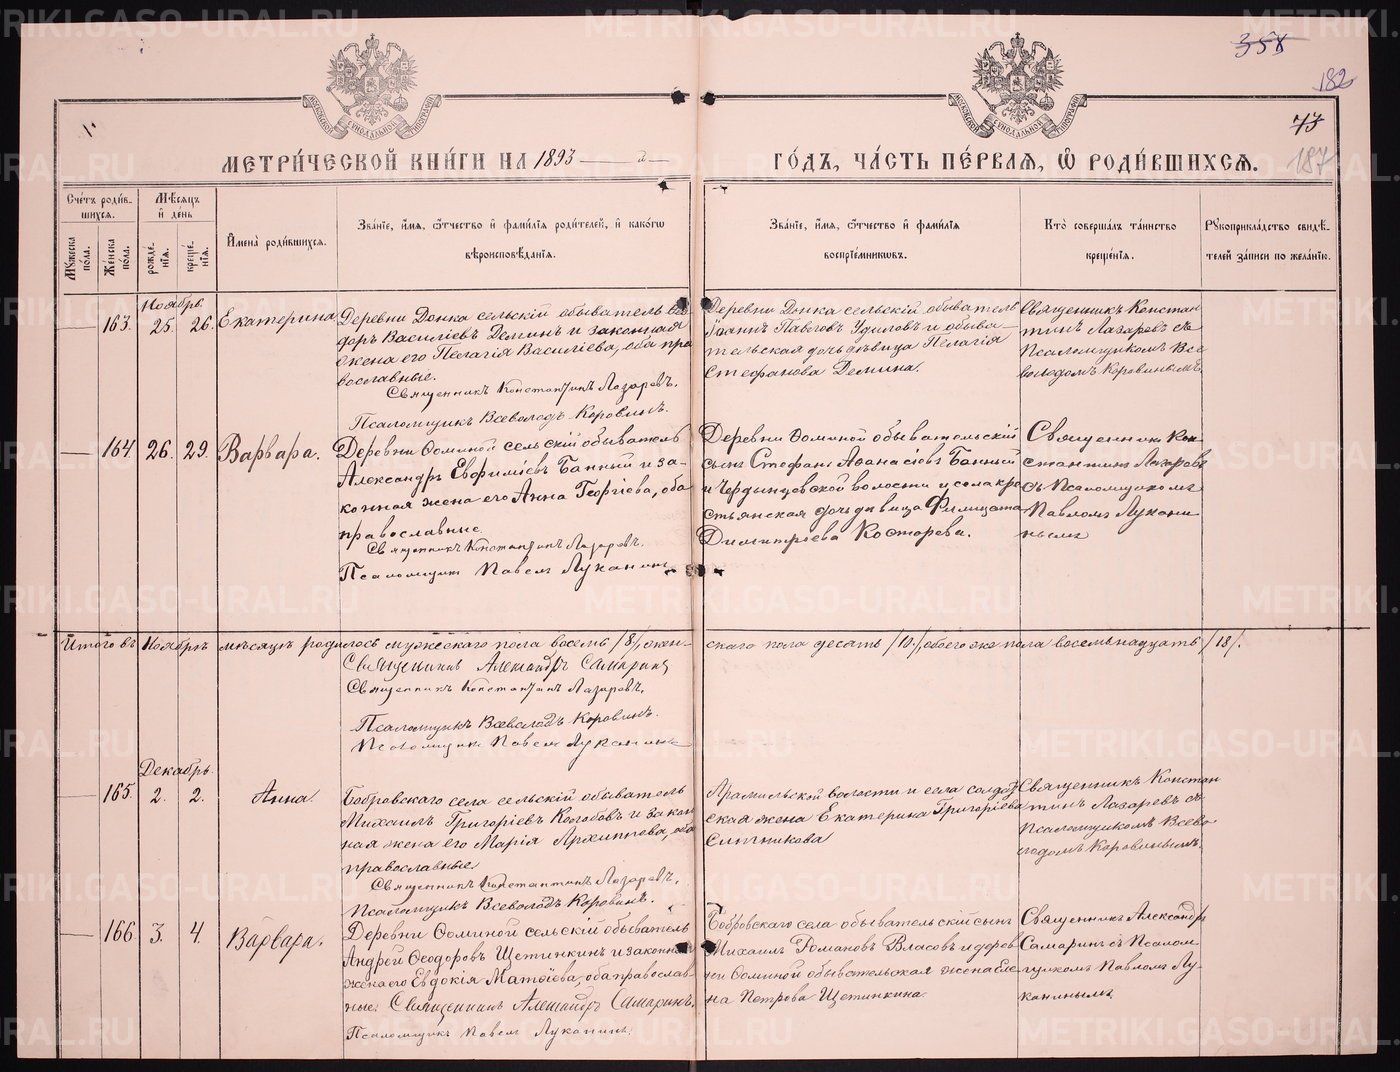 358
182
73
187
МЕТРИ́ЧЕСКОЙ КНИ́ГИ НА 1893 — й —
ГО́ДЪ, ЧА́СТЬ ПЕ́РВАЯ, Ѡ РОДИ́ВШИХСЯ.
Сче́тъ роди́в-
шихся.
Мѣ́сяцъ
и́ де́нь
Му́жеска по́ла.
Же́нска по́ла.
рожде́-
нія.
креще́-
нія.
И҆мена̀ роди́вшихся.
Зва́ніе, и҆́мя, ѻ҆́тчество и҆ фами́лія роди́телей, и҆ како́гѡ
вѣроисповѣ́данія.
Зва́ніе, и҆́мя, ѻ҆́тчество и҆ фами́лія
воспріе́мниковъ.
Кто̀ соверша́лъ та́инство
креще́нія.
Рꙋкоприкла́дство свидѣ́-
телей за́писи по жела́нію.
Ноябрь.
163. 25. 26. Екатерина
Деревни Донка сельскій обыватель Ѳе-
доръ Василіевъ Деминъ и законная
жена его Пелагія Василіева, оба пра
вославные.
Священникъ Константинъ Лазаревъ.
Псаломщикъ Всеволодъ Коровинъ.
Деревни Донка сельскій обыватель
Іоаннъ Павловъ Удиловъ и обыва-
тельская дочь дѣвица Пелагія
Стефанова Демина.
Священникъ Констан
тинъ Лазаревъ съ
Псаломщикомъ Все
володомъ Коровинымъ.
164. 26. 29. Варвара.
Деревни Ѳоминой сельскій обыватель
Александръ Евфиміевъ Банный и за-
конная жена его Анна Георгіева, оба
православные
Священникъ Константинъ Лазаревъ.
Псаломщик Павел Луканин
Деревни Ѳоминой обывательскій
сынъ Стефанъ Аѳанасіевъ Банный
и Чердынцевской волости и села кре
стьянская дочь дѣвица Филицата
Димитріева Косторева.
Священникъ Кон
стантинъ Лазаревъ
съ Псаломщикомъ
Павломъ Лукани
нымъ
Итого въ Ноябрѣ мѣсяцѣ родилось мужескаго пола восемь /8/, жен-
скаго пола десять /10./, обоего же пола восемьнадцать /18/.
Священникъ Александръ Самаринъ
Священникъ Константинъ Лазаревъ.
Псаломщикъ Всеволодъ Коровинъ.
Псаломщикъ Павелъ Луканинъ
Декабрь.
165. 2. 2. Анна.
Бобровскаго села сельскій обыватель
Михаилъ Григоріевъ Колобовъ и закон
ная жена его Марія Архиппова, оба
православные.
Священникъ Константинъ Лазаревъ.
Псаломщикъ Всеволодъ Коровинъ.
Арамильской волости и села солдат
ская жена Екатерина Григоріева
Ситникова
Священникъ Констан
тинъ Лазаревъ съ
Псаломщикомъ Всево
лодомъ Коровинымъ.
166. 3. 4. Варвара.
Деревни Ѳоминой сельскій обыватель
Андрей Ѳеодоровъ Щетинкинъ и законная
жена его Евдокія Матѳіева, оба православ
ные. Священникъ Александръ Самаринъ.
Псаломщикъ Павелъ Луканинъ.
Бобровскаго села обывательскій сынъ
Михаилъ Романовъ Власовъ и дерев
ни Ѳоминой обывательская жена Еле
на Петрова Щетинкина.
Священникъ Александръ
Самаринъ съ Псалом
щикомъ Павломъ Лу-
канинымъ.
METRIKI.GASO-URAL.RU